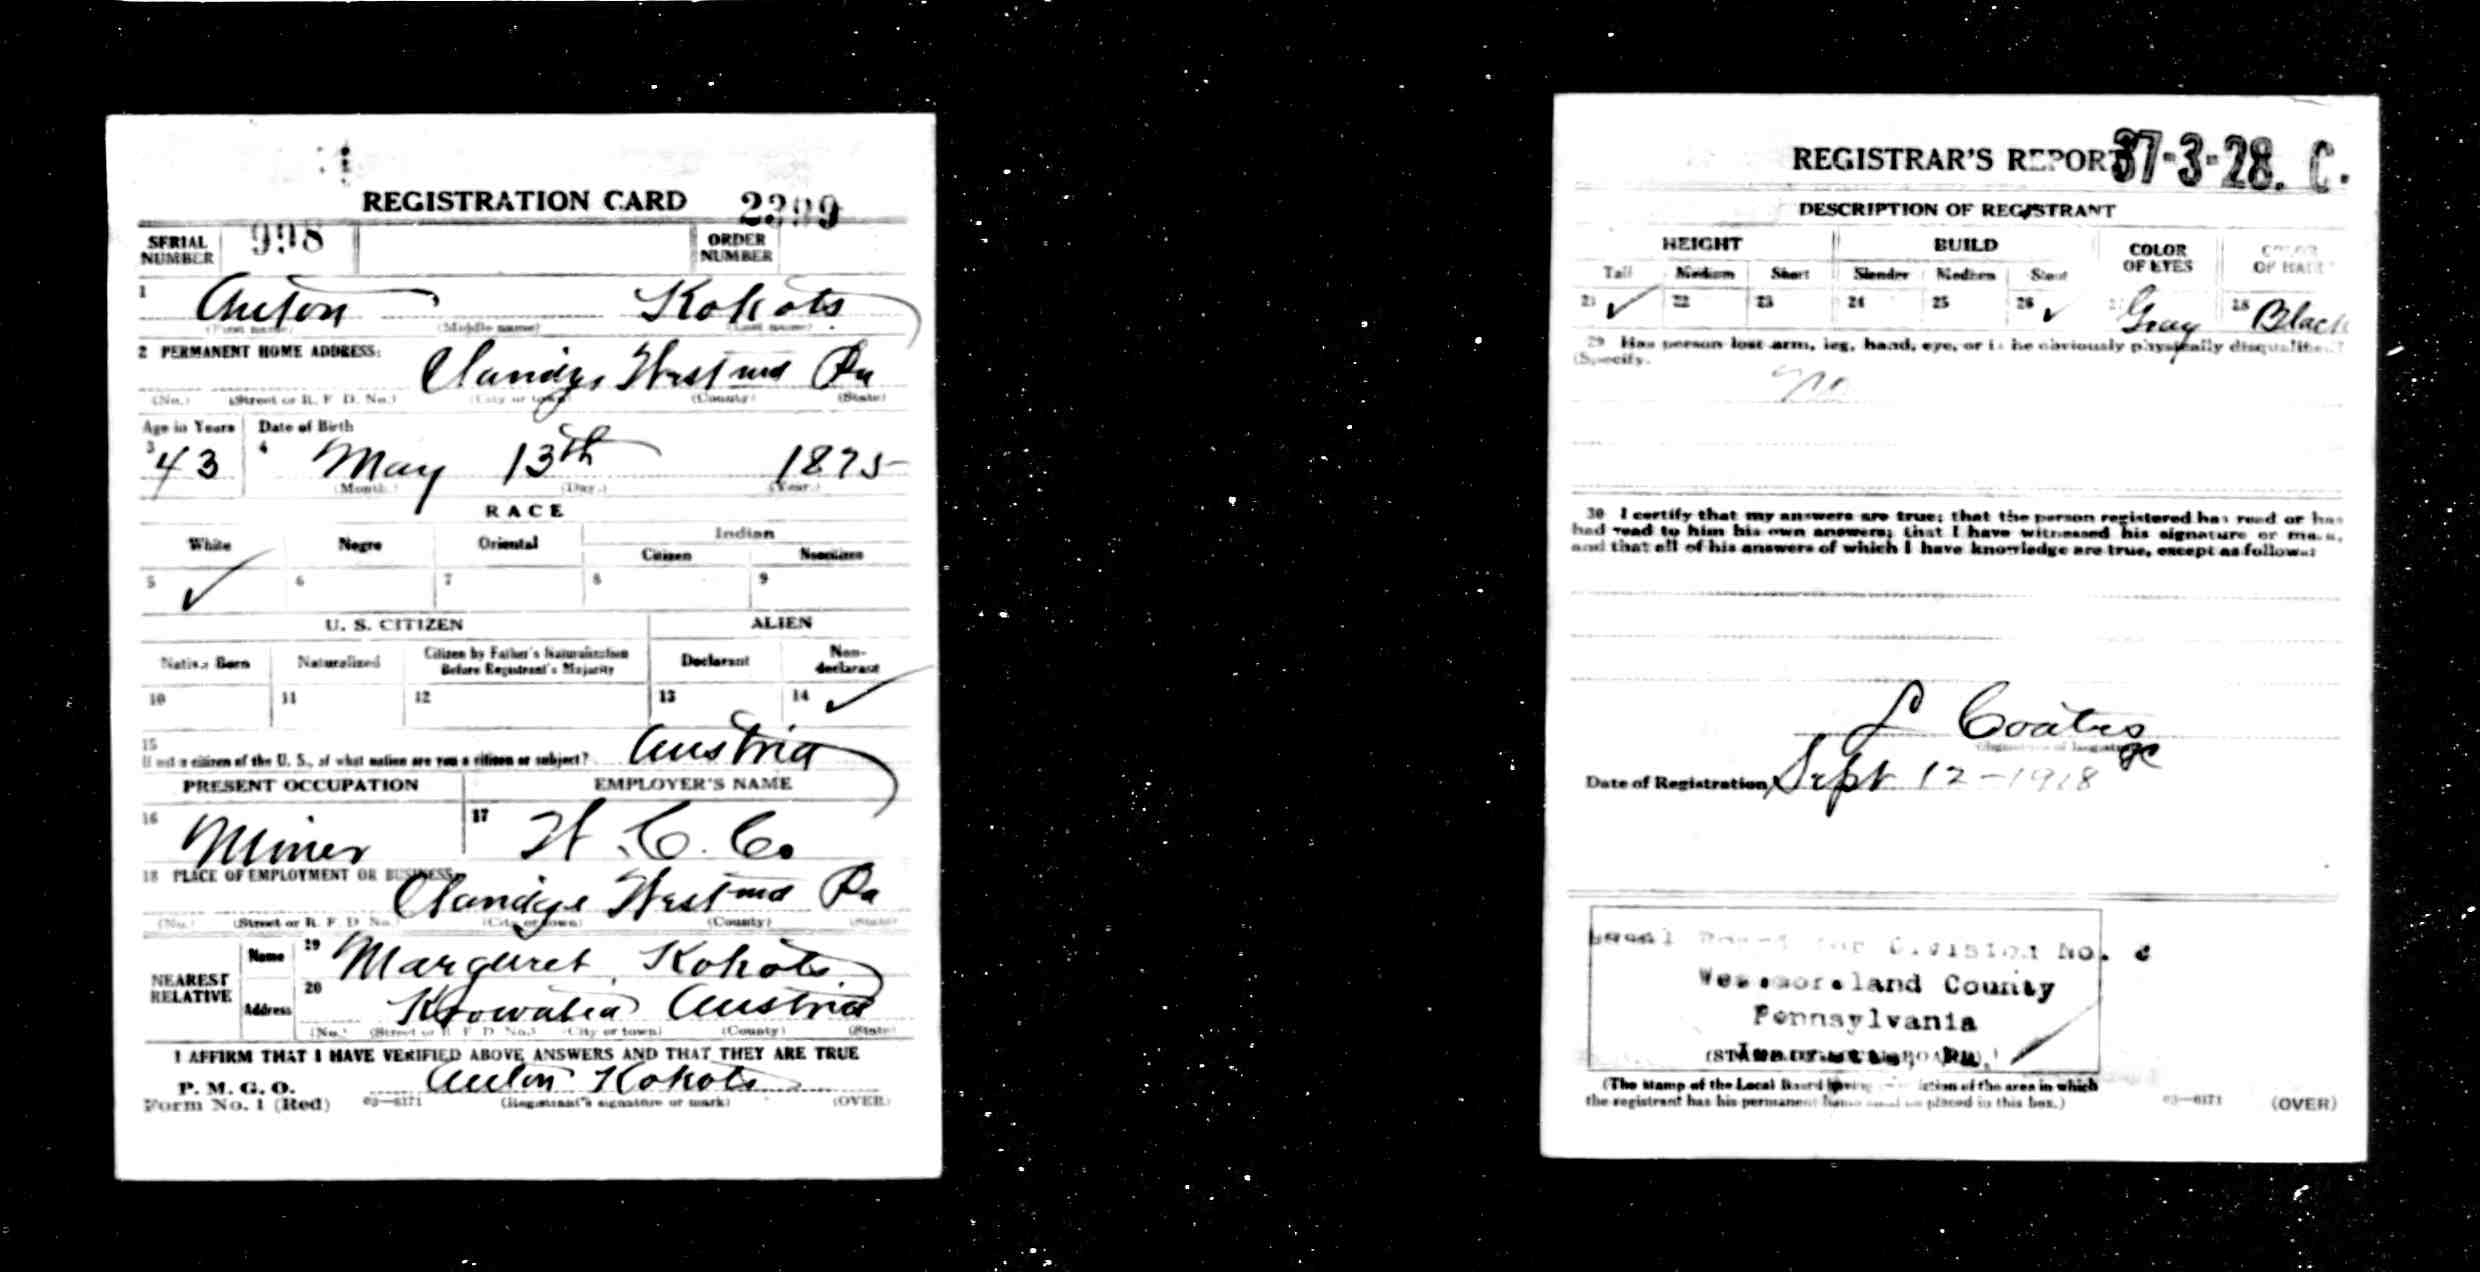 REGISTRATION CARD
SERIAL NUMBER 998 ORDER NUMBER 2399
1 Anton Kokots
(First name) (Middle name) (Last name)
2 PERMANENT HOME ADDRESS:
Clandys Westmd Pa
(No.) (Street or R. F. D. No.) (City or town) (County) (State)
Age in Years Date of Birth
3 43 4 May 13th 1875
(Month.) (Day.) (Year.)
RACE
White Negro Oriental Indian
Citizen Noncitizen
5 ✓ 6 7 8 9
U. S. CITIZEN ALIEN
Native Born Naturalized Citizen by Father's Naturalization Before Registrant's Majority Declarant Non-declarant
10 11 12 13 14 ✓
15
If not a citizen of the U. S., of what nation are you a citizen or subject? Austria
PRESENT OCCUPATION EMPLOYER'S NAME
16 Miner 17 H. C. Co.
18 PLACE OF EMPLOYMENT OR BUSINESS:
Clandys Westmd Pa
(No.) (Street or R. F. D. No.) (City or town) (County) (State)
NEAREST RELATIVE
Name 19 Margaret Kokots
Address 20 Krowatia Austria
(No.) (Street or R. F. D. No.) (City or town) (County) (State)
I AFFIRM THAT I HAVE VERIFIED ABOVE ANSWERS AND THAT THEY ARE TRUE
P. M. G. O.
Form No. 1 (Red) 03—6171 Anton Kokots
(Registrant's signature or mark) (OVER)
REGISTRAR'S REPORT 37-3-28. C.
DESCRIPTION OF REGISTRANT
HEIGHT BUILD COLOR OF EYES COLOR OF HAIR
Tall Medium Short Slender Medium Stout
21 ✓ 22 23 24 25 26 ✓ Gray 28 Black
29 Has person lost arm, leg, hand, eye, or is he obviously physically disqualified?
(Specify.
No
30 I certify that my answers are true; that the person registered has read or has
had read to him his own answers; that I have witnessed his signature or mark,
and that all of his answers of which I have knowledge are true, except as follows:
L Coates
(Signature of Registrar)
Date of Registration Sept 12-1918
Local Board for Division No.
Westmoreland County
Pennsylvania
(STAMP OF LOCAL BOARD.)
(The stamp of the Local Board having jurisdiction of the area in which
the registrant has his permanent home shall be placed in this box.)
03—6171 (OVER)